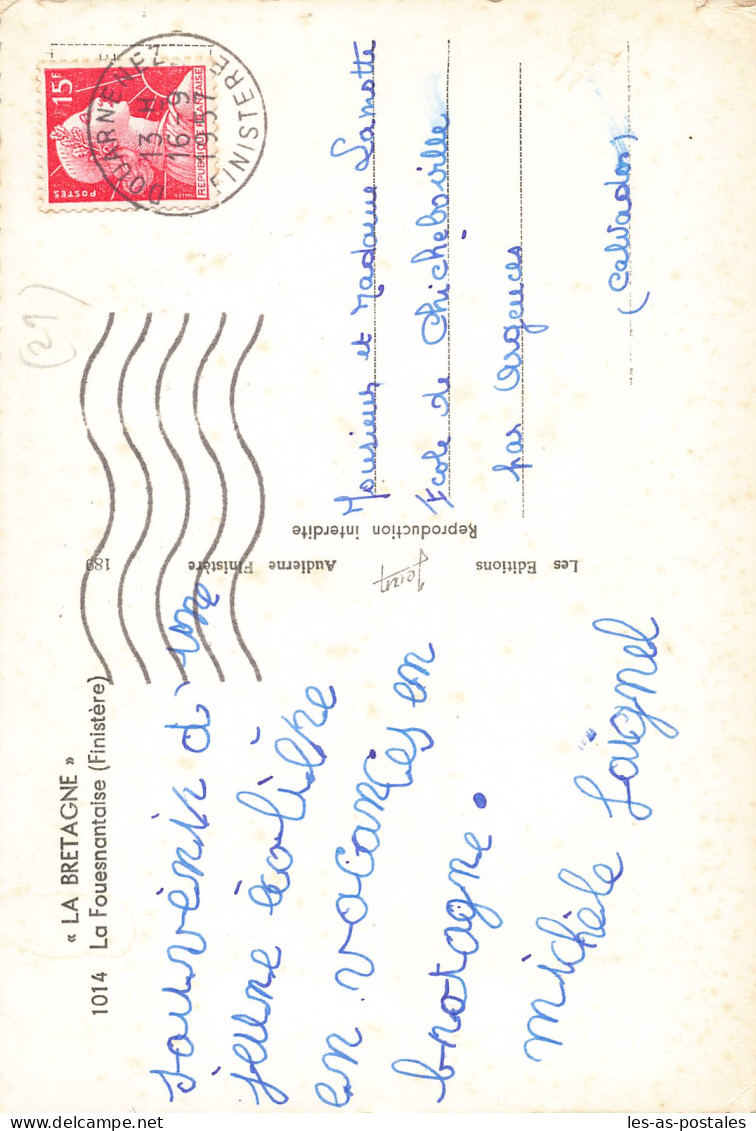 « LA BRETAGNE »
1014 La Fouesnantaise (Finistère)
souvenir d'une
jeune écolière
en vacances en
bretagne.
Michèle Laignel
Les Editions
Jean
Audierne Finistère
189
Reproduction interdite
15F
POSTES
REPUBLIQUE FRANCAISE
DOUARNENEZ
13 H
16-9
1957
FINISTERE
Monsieur et Madame Lamotte
Ecole de Chicheboville
par Argences
(Calvados)
(21)
les-as-postales